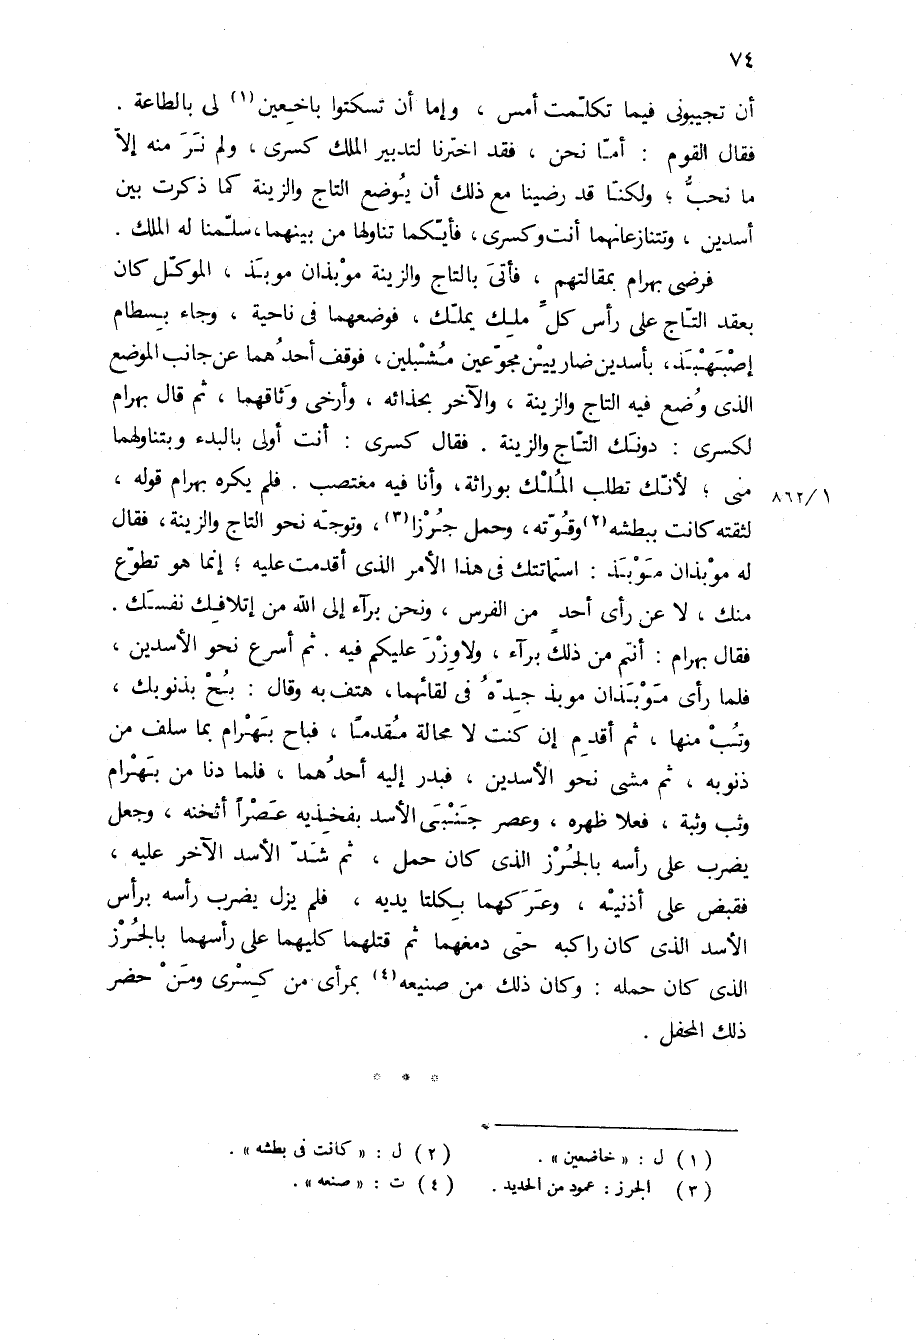 ٧٤
أن تجيبونى فيما تكلّمت أمس ، وإما أن تسكتوا باخعين(١) لى بالطاعة .
فقال القوم : أمّا نحن ، فقد اخترنا لتدبير الملك كسرى ، ولم نَرَ منه إلاّ
ما نحبُّ ؛ ولكنّا قد رضينا مع ذلك أن يُوضع التاج والزينة كما ذكرت بين
أسدين ، وتتنازعانهما أنت وكسرى ، فأيّكما تناولها من بينهما، سلّمنا له الملك .
فرضى بهرام بمقالتهم ، فأتىَ بالتاج والزينة موْبذان موبَذ ، الموكّل كان
بعقد التّاج على رأس كلّ ملِك يملّك ، فوضعهما فى ناحية ، وجاء بِسطام
إصْبَهْبَذ، بأسدين ضارييْن مجوّعين مُشْبلين ، فوقف أحدُهما عن جانب الموضع
الذى وُضع فيه التاج والزينة ، والآخر بحذائه ، وأرخى وَثاقهما ، ثم قال بهرام
لكسرى : دونَك التّاج والزينة . فقال كسرى : أنت أولى بالبدء وبتناولهما
منى ؛ لأنّك تطلب المُلْك بوراثة، وأنا فيه مغتصب . فلم يكره بهرام قوله ،
٨٦٢/١
لثقته كانت ببطشه(٢) وقُوّته، وحمل جُرْزا(٣)، وتوجّه نحو التاج والزينة، فقال
له موْبذان مَوْبَذ : استماتتك فى هذا الأمر الذى أقدمت عليه ؛ إنما هو تطوّع
منك ، لا عن رأى أحدٍ من الفرس ، ونحن برآء إلى الله من إتلافِك نفسَك .
فقال بهرام : أنتم من ذلك برآء ، ولا وِزْرَ عليكم فيه . ثم أسرع نحو الأسدين ،
فلما رأى مَوْبَذان موبذ جِدّهُ فى لقائهما، هتف به وقال : بُحْ بذنوبك ،
وتُبْ منها ، ثم أقدِم إن كنت لا محالة مُقدمًا ، فباح بَهْرام بما سلف من
ذنوبه ، ثم مشى نحو الأسدين ، فبدر إليه أحدُهما ، فلما دنا من بَهْرام
وثب وثبة ، فعلا ظهره ، وعصر جَنْبَىِ الأسد بفخذيه عَصْراً أثخنه ، وجعل
يضرب على رأسه بالجُرْز الذى كان حمل ، ثم شَدّ الأسد الآخر عليه ،
فقبض على أذنيْه ، وعَرَكهما بكلتا يديه ، فلم يزل يضرب رأسه برأس
الأسد الذى كان راكبه حتى دمغهما ثم قتلهما كليهما على رأسهما بالجُرْز
الذى كان حمله : وكان ذلك من صنيعه(٤) بمرأى من كِسْرى ومَنْ حضر
ذلك المحفل .
* * *
(١) ل : « خاضعين » .
(٢) ل : « كانت فى بطشه » .
(٣) الجرز : عمود من الحديد .
(٤) ت : « صنعه » .